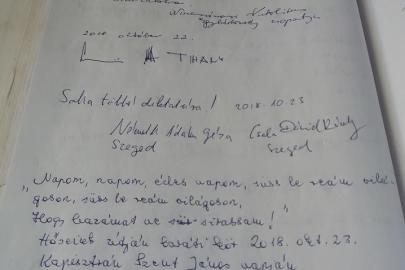 2018 október 22.
TIHANY
Soha többé diktatúra! 2018.10.23
Németh Ádám Géza Csala Dávid Károly
Szeged Szeged
„Napom, napom, édes napom, süss le reám vilá-
gosan, süss le reám világosan,
Hogy hazámat ne sirassam!"
Hőseink útján baráti kör 2018. okt. 23.
Kapisztrán Szent János napján